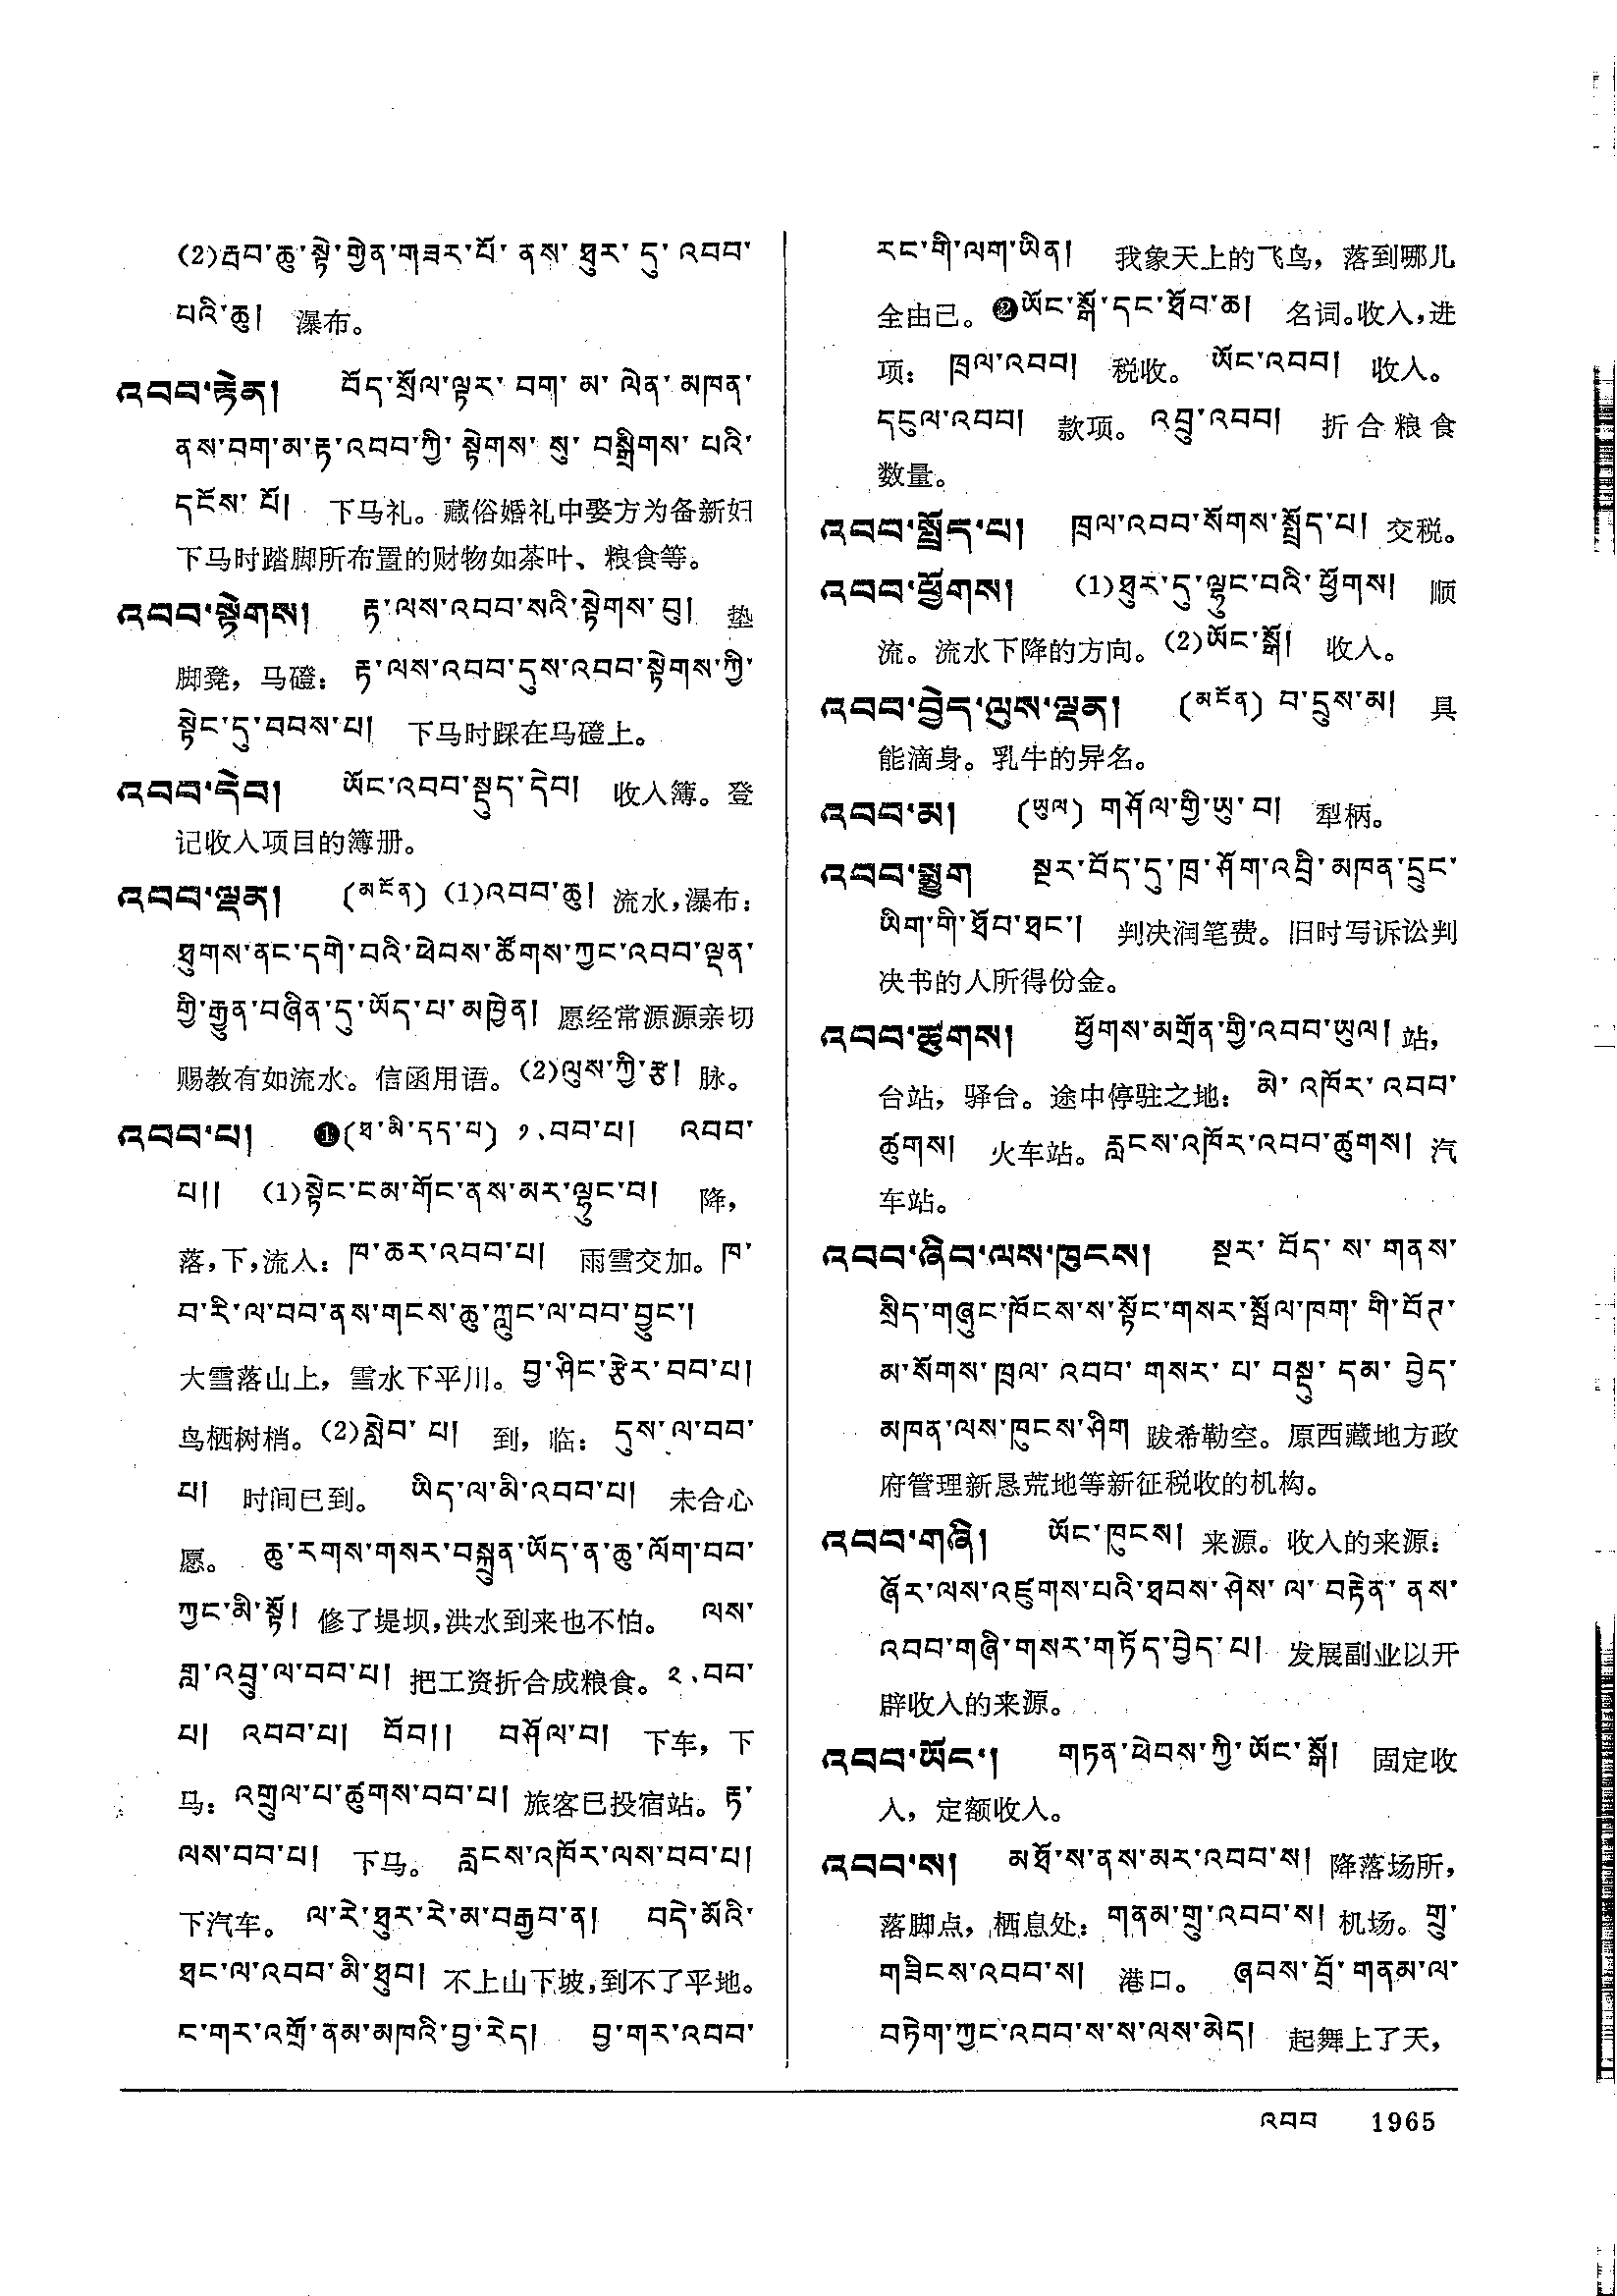 (2)རྦབ་ཆུ་སྟེ་གྱེན་གཟར་པོ་ ནས་ ཐུར་ དུ་ འབབ་
པའི་ཆུ། 瀑布。
འབབ་རྟེན། བོད་སྲོལ་ལྟར་ བག་ མ་ ལེན་ མཁན་
ནས་བག་མ་རྟ་འབབ་ཀྱི་ སྟེགས་ སུ་ བསྒྲིགས་ པའི་
དངོས་ པོ། 下马礼。藏俗婚礼中娶方为备新妇
下马时踏脚所布置的财物如茶叶、粮食等。
འབབ་སྟེགས། རྟ་ལས་འབབ་སའི་སྟེགས་བུ། 垫
脚凳，马磴：རྟ་ལས་འབབ་དུས་འབབ་སྟེགས་ཀྱི་
སྟེང་དུ་བབས་པ། 下马时踩在马磴上。
འབབ་དེབ། ཡོང་འབབ་སྡུད་དེབ། 收入簿。登
记收入项目的簿册。
འབབ་ལྡན། (མངོན) (1)འབབ་ཆུ། 流水,瀑布：
ཐུགས་ནང་དགེ་བའི་ཕེབས་ཚོགས་ཀྱང་འབབ་ལྡན་
གྱི་རྒྱུན་བཞིན་དུ་ཡོད་པ་མཁྱེན། 愿经常源源亲切
赐教有如流水。信函用语。(2)ལུས་ཀྱི་རྩ། 脉。
འབབ་པ། ❶(ཐ་མི་དད་པ) ༡.བབ་པ། འབབ་
པ།། (1)སྟེང་ངམ་གོང་ནས་མར་ལྷུང་བ། 降，
落,下,流入：ཁ་ཆར་འབབ་པ། 雨雪交加。ཁ་
བ་རི་ལ་བབ་ནས་གངས་ཆུ་ཀླུང་ལ་བབ་བྱུང་།
大雪落山上，雪水下平川。བྱ་ཤིང་རྩེར་བབ་པ།
鸟栖树梢。(2)སླེབ་ པ། 到，临：དུས་ལ་བབ་
པ། 时间已到。 ཡིད་ལ་མི་འབབ་པ། 未合心
愿。 ཆུ་རགས་གསར་བསྐྲུན་ཡོད་ན་ཆུ་ལོག་བབ་
ཀྱང་མི་སྟོ། 修了堤坝,洪水到来也不怕。 ལས་
གླ་འབྲུ་ལ་བབ་པ། 把工资折合成粮食。༢.བབ་
པ། འབབ་པ། བོབ།། བཤོལ་བ། 下车，下
马：འགྲུལ་པ་ཚུགས་བབ་པ། 旅客已投宿站。རྟ་
ལས་བབ་པ། 下马。 རླངས་འཁོར་ལས་བབ་པ།
下汽车。 ལ་རེ་ཐུར་རེ་མ་བརྒྱབ་ན། བདེ་མོའི་
ཐང་ལ་འབབ་མི་ཐུབ། 不上山下坡,到不了平地。
ང་གར་འགྲོ་ནམ་མཁའི་བྱ་རེད། བྱ་གར་འབབ་
རང་གི་ལག་ཡིན། 我象天上的飞鸟，落到哪儿
全由己。❷ཡོང་སྒོ་དང་ཐོབ་ཆ། 名词。收入,进
项：ཁྲལ་འབབ། 税收。 ཡོང་འབབ། 收入。
དངུལ་འབབ། 款项。 འབྲུ་འབབ། 折合粮食
数量。
འབབ་སྤྲོད་པ། ཁྲལ་འབབ་སོགས་སྤྲོད་པ། 交税。
འབབ་ཕྱོགས། (1)ཐུར་དུ་ལྷུང་བའི་ཕྱོགས། 顺
流。流水下降的方向。(2)ཡོང་སྒོ། 收入。
འབབ་བྱེད་ལུས་ལྡན། (མངོན) བ་དྲུས་མ། 具
能滴身。乳牛的异名。
འབབ་མ། (ཡུལ) གཤོལ་གྱི་ཡུ་བ། 犁柄。
འབབ་སྨྱུག སྔར་བོད་དུ་ཁྲ་ཤོག་འབྲི་མཁན་དྲུང་
ཡིག་གི་ཐོབ་ཐང་། 判决润笔费。旧时写诉讼判
决书的人所得份金。
འབབ་ཚུགས། ཕྱོགས་མགྲོན་གྱི་འབབ་ཡུལ། 站，
台站，驿台。途中停驻之地：མེ་ འཁོར་ འབབ་
ཚུགས། 火车站。རླངས་འཁོར་འབབ་ཚུགས། 汽
车站。
འབབ་ཞིབ་ལས་ཁུངས། སྔར་ བོད་ ས་ གནས་
སྲིད་གཞུང་ཁོངས་ས་སྟོང་གསར་སློལ་ཁག་ གི་བོཊ་
མ་སོགས་ཁྲལ་ འབབ་ གསར་ པ་ བསྡུ་ དམ་ བྱེད་
མཁན་ལས་ཁུངས་ཤིག 跋希勒空。原西藏地方政
府管理新恳荒地等新征税收的机构。
འབབ་གཞི། ཡོང་ཁུངས། 来源。收入的来源：
ཞོར་ལས་འཛུགས་པའི་ཐབས་ཤེས་ ལ་ བརྟེན་ ནས་
འབབ་གཞི་གསར་གཏོད་བྱེད་པ། 发展副业以开
辟收入的来源。
འབབ་ཡོང་། གཏན་ཕེབས་ཀྱི་ཡོང་སྒོ། 固定收
入，定额收入。
འབབ་ས། མཐོ་ས་ནས་མར་འབབ་ས། 降落场所，
落脚点，栖息处：གནམ་གྲུ་འབབ་ས། 机场。གྲུ་
གཟིངས་འབབ་ས། 港口。 ཞབས་བྲོ་ གནམ་ལ་
བཏེག་ཀྱང་འབབ་ས་ས་ལས་མེད། 起舞上了天，
འབབ 1965